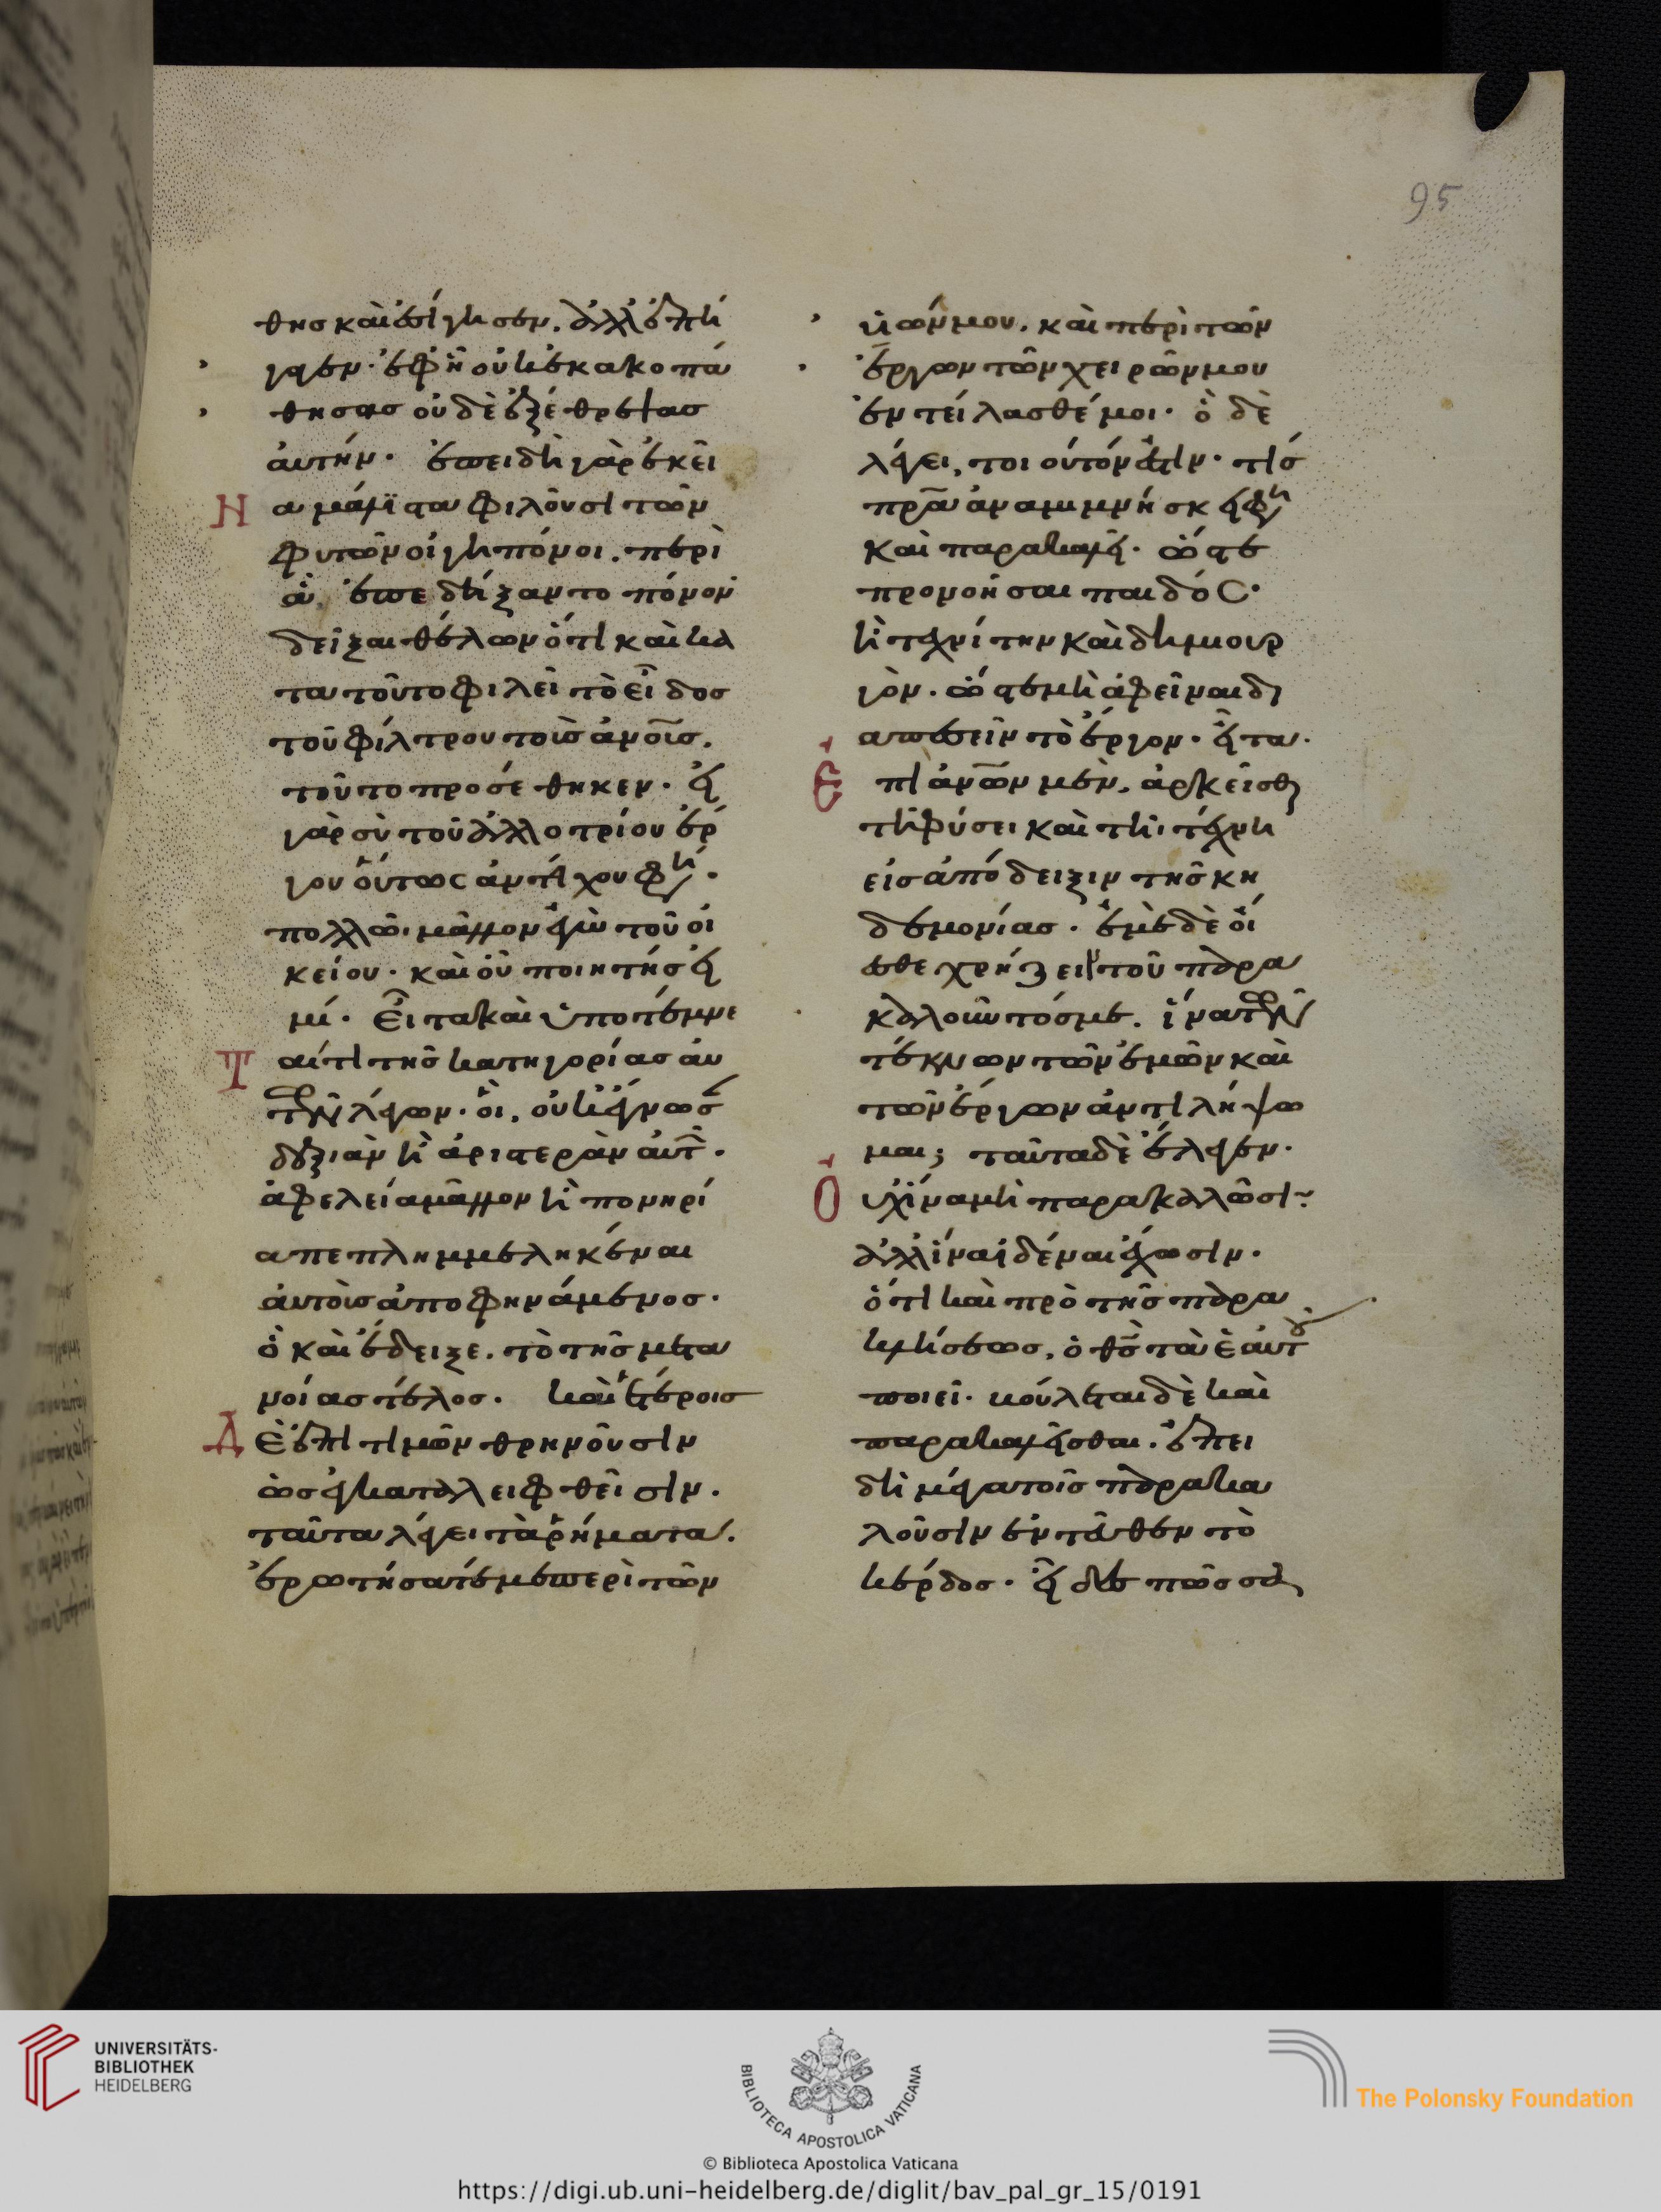 95
θησ καὶ ἐσίγησεν. ἀλλ' ἐπή
γαγεν· ἐφ' ἣν οὐκ ἐκακοπά
θησας οὐδὲ ἐξέθρεψας
αὐτήν· ἐπειδὴ γὰρ ἐκεῖ
να μάλιστα φιλοῦσι τῶν
φυτῶν οἱ γηπόνοι, περὶ
ἃ ἐπεδείξαντο πόνον
δεῖξαι θέλων ὅτι καὶ κα
τὰ τοῦτο φιλεῖ τὸ εἶδος
τοῦ φίλτρου τοῖς ἀνοῖς,
τοῦτο προσέθηκεν· εἰ
γὰρ σὺ τοῦ ἀλλοτρίου ἔρ
γου οὕτως ἀντέχου φη·
πολλῶ μᾶλλον ἐγὼ τοῦ οἰ
κείου· καὶ οὗ ποιητής εἰ
μί· Εἶτα καὶ ὑποτέμνε
ται τι τῆς κατηγορίας αὐ
τῶν λέγων· οἳ, οὐκ ἔγνωσ
δεξιὰν ἢ ἀριστερὰν αὐτ·
ἀφελεία μᾶλλον ἢ πονηρί
α πεπλημμεληκέναι
αὐτοὺς ἀποφηνάμενος·
ὃ καὶ ἔδειξε. τὸ τῆς μετα
νοίας τέλος. καὶ ἑτέροις
δὲ ἐπιτιμῶν θρηνοῦσιν
ὡς ἐγκαταλειφθεῖσιν.
ταῦτα λέγει τὰ ῥήματα.
ἐρωτήσατέ με περὶ τῶν
υἱῶν μου. καὶ περὶ τῶν
ἔργων τῶν χειρῶν μου
ἐντείλασθέ μοι· ὃ δὲ
λέγει, τοιοῦτόν ἐστιν· τίς
πρα ἀναμιμνήσκει φη
καὶ παρακαλεῖ· ὥστε
προνοῆσαι παιδός·
ἢ τεχνίτην καὶ δημιουρ
γὸν· ὥστε μὴ ἀφεῖναι δι
απεσεῖν τὸ ἔργον· εἶτα
ἐπὶ ἀνων μὲν, ἀρκεῖσθε
τῇ φύσει καὶ τῇ τέχνη
εἰς ἀπόδειξιν τῆς κη
δεμονίας· ἐμὲ δὲ οἴ
εσθε χρήζειν τοῦ παρα
καλοῦντός με. ἵνα τῶν
τέκνων τῶν ἐμῶν καὶ
τῶν ἔργων ἀντιλήψω
μαι; ταῦτα δὲ ἔλεγεν·
οὐχ ἵνα μὴ παρακαλῶσι·
ἀλλ' ἵνα εἰδέναι ἔχωσιν·
ὅτι καὶ πρὸ τῆς παρα
κλήσεως, ὁ θς τὰ ἑαυτοῦ
ποιεῖ· βούλεται δὲ καὶ
παρακαλεῖσθαι. ἐπει
δὴ μέγα τοῖς παρακα
λοῦσιν ἐντεῦθεν τὸ
κέρδος· εἶδες πῶς σα
UNIVERSITÄTS-
BIBLIOTHEK
HEIDELBERG
BIBLIOTECA APOSTOLICA VATICANA
The Polonsky Foundation
© Biblioteca Apostolica Vaticana
https://digi.ub.uni-heidelberg.de/diglit/bav_pal_gr_15/0191